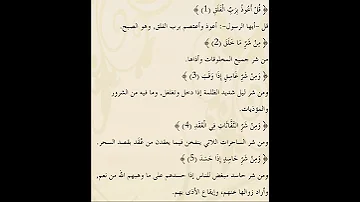 ﴿ قُلْ أَعُوذُ بِرَبِّ الْفَلَقِ (1) ﴾
قل -أيها الرسول-: أعوذ وأعتصم برب الفلق, وهو الصبح.
﴿ مِن شَرِّ مَا خَلَقَ (2) ﴾
من شر جميع المخلوقات وأذاها.
﴿ وَمِن شَرِّ غَاسِقٍ إِذَا وَقَبَ (3) ﴾
ومن شر ليل شديد الظلمة إذا دخل وتغلغل, وما فيه من الشرور
والمؤذيات.
﴿ وَمِن شَرِّ النَّفَّاثَاتِ فِي الْعُقَدِ (4) ﴾
ومن شر الساحرات اللاتي ينفخن فيما يعقدن من عُقَد بقصد السحر.
﴿ وَمِن شَرِّ حَاسِدٍ إِذَا حَسَدَ (5) ﴾
ومن شر حاسد مبغض للناس إذا حسدهم على ما وهبهم الله من نعم,
وأراد زوالها عنهم, وإيقاع الأذى بهم.